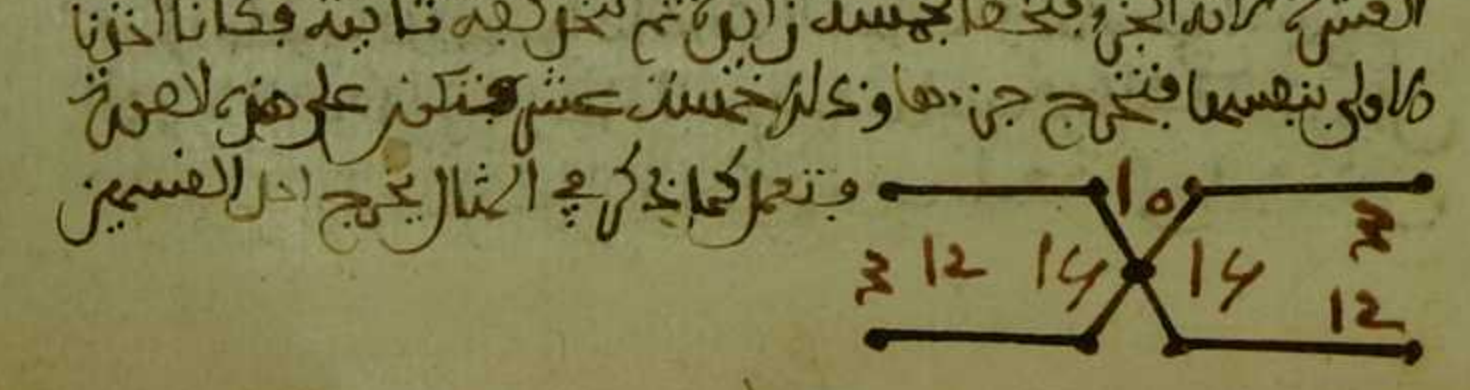 العشرة لانه الجزء فتجدها بخمسة زايدة ثم تتخذ كفة ثانية فكانا اخذنا
الاولى بنفسها فتخرج جزءها وذلك خمسة عشر فتكون على هذه الصورة
وتعمل كما ذكر في المثال يخرج اقل القسمين
10
3
3 12 15 15
12